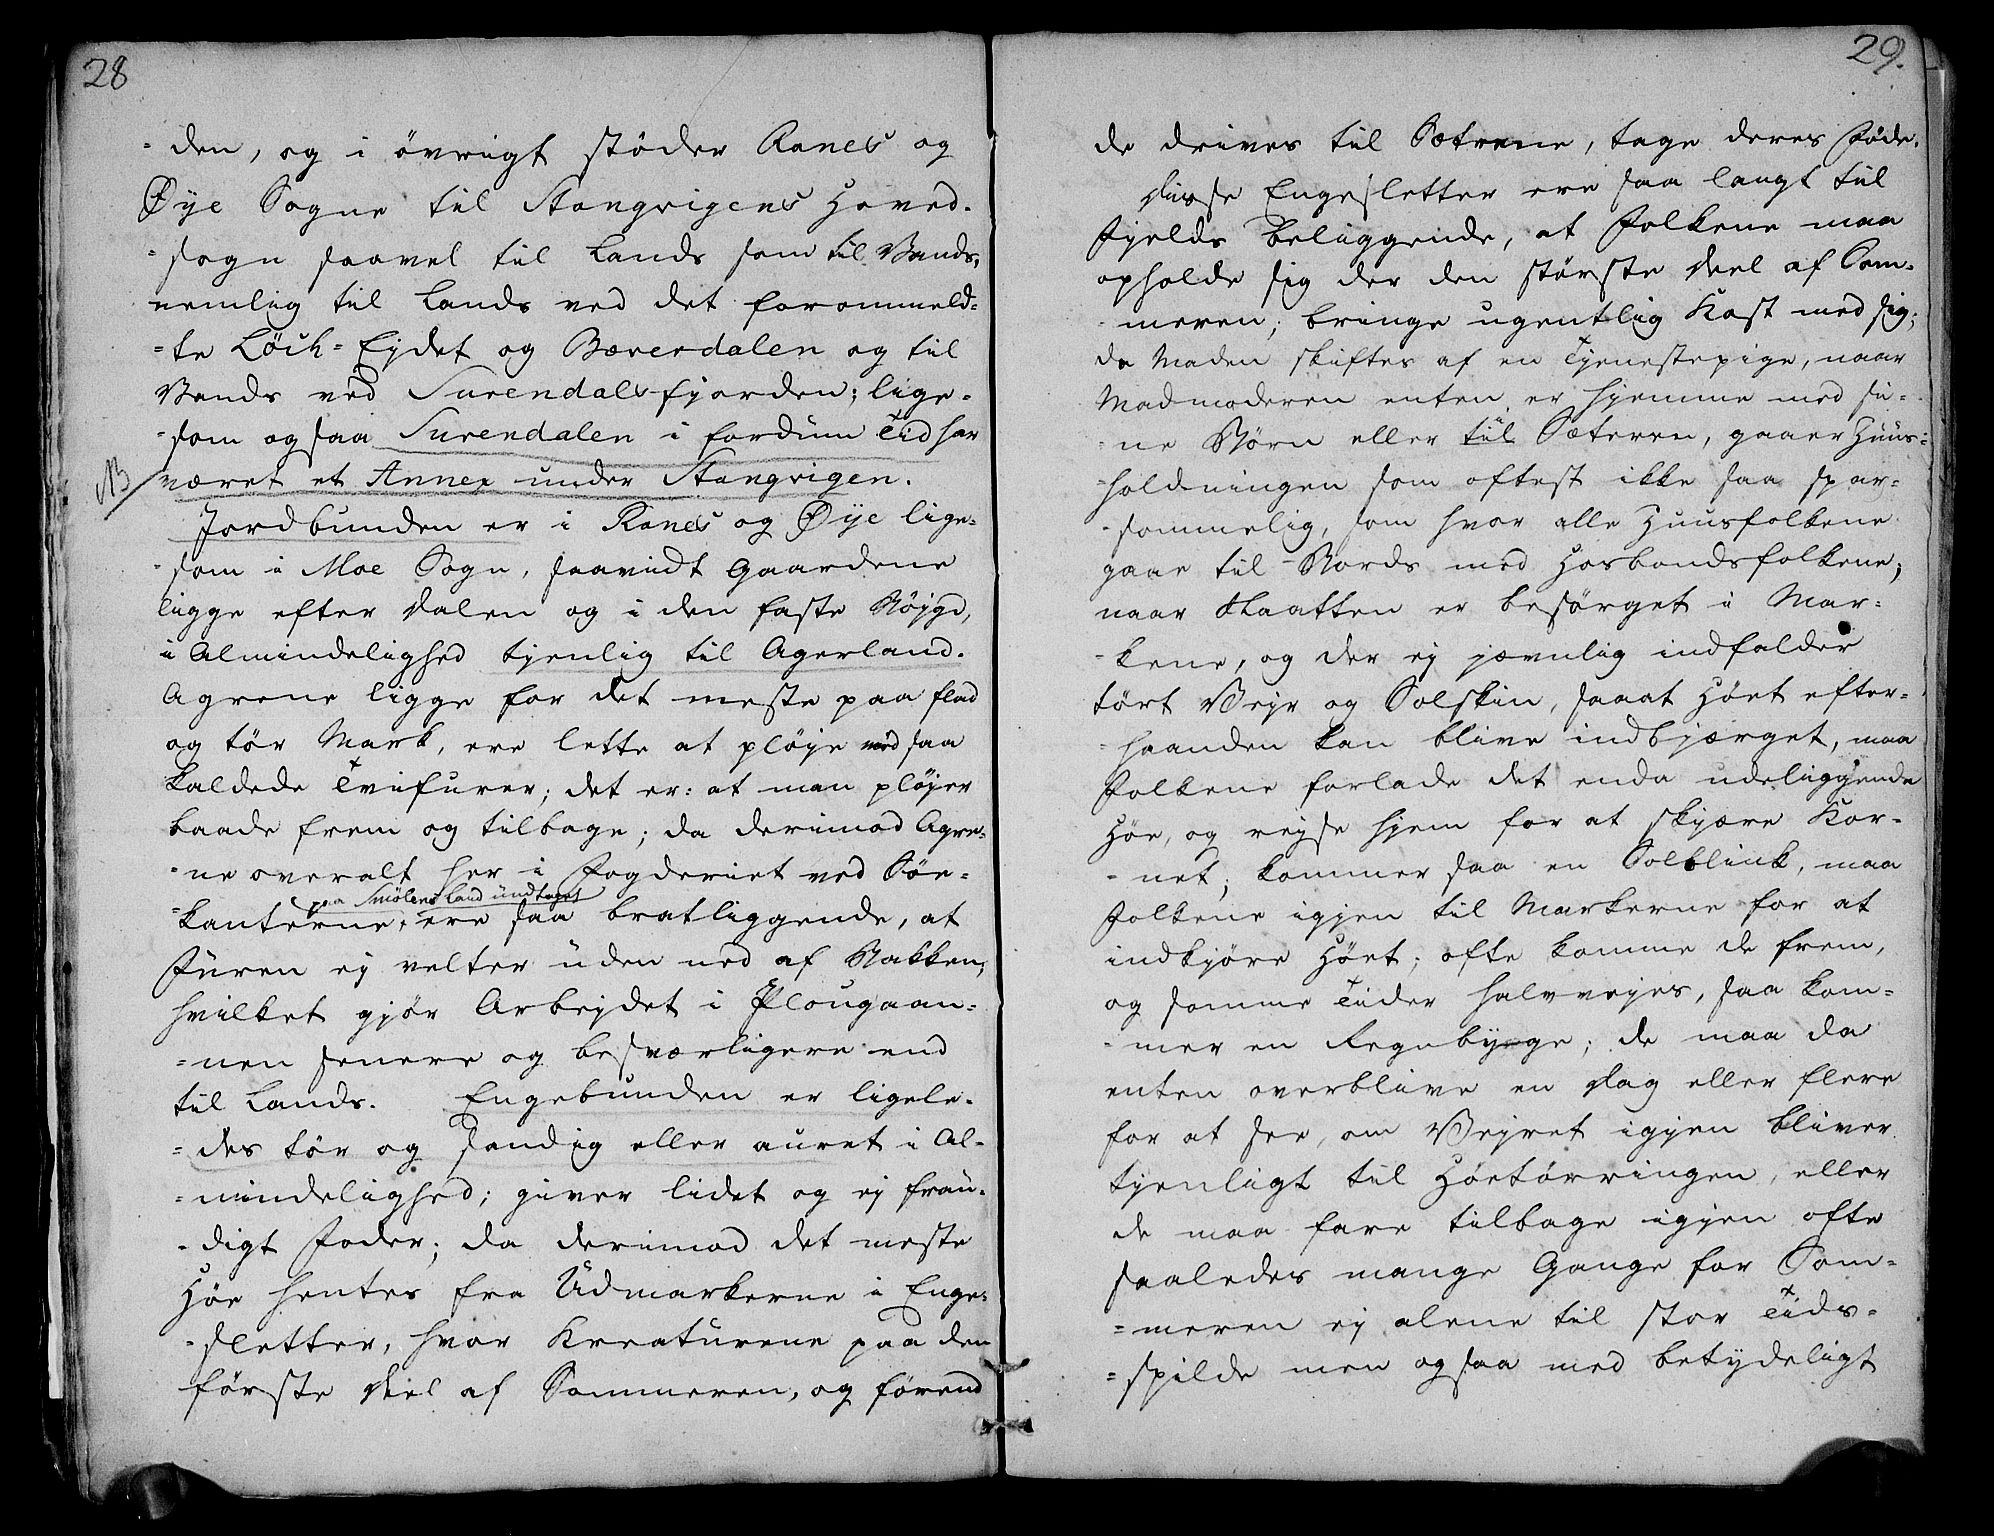 28
-den, og i övrigt støder Ranes og
Øye Sogne til Stangvigens Hoved-
-sogn saavel til Lands som til Vands,
nemlig til Lands ved det forommeld-
-te Löch-Eydet og Bæverdalen og til
Vands ved Surendals-fjorden; lige-
-som ogsaa Surendalen i fordum Tid har
NB
været et Annex under Stangvigen.
Jordbunden er i Ranes og Øye lige-
-som i Moe Sogn, saavidt Gaardene
ligge efter Dalen og i den faste Bøjgd,
i Almindelighed tjenlig til Agerland.
Agrene ligge for det meste paa flad
og tör Mark, ere lette at pløje med saa
kaldede Tvifurer; det er: at man pløjer
baade frem og tilbage; da derimod Agre-
-ne overalt her i Fogderiet ved Söe-
paa Smölens Land undtaget
-kanterne, ere saa bratliggende, at
Furen ej velter uden ned af Bakken,
hvilket gjör Arbejdet i Plougaan-
-nen senere og besværligere end
til Lands. Engebunden er ligele-
-des tör og sandig eller auret i Al-
-mindelighed; giver lidet og ej frau-
-digt Foder; da derimod det meste
Höe hentes fra Udmarkerne i Enge-
-sletter, hvor Kreaturene paa den
förste Deel af Sommeren, og förend
29.
de drives til Sætrene, tage deres Føde.
Disse Engesletter ere saa langt til
Fjelds beliggende, at Folkene maa
opholde sig der den störste Deel af Som-
-meren; bringe ugentlig Kost med sig;
da Maden skiftes af en Tjenestepige, naar
Madmoderen enten er hjemme med si-
-ne Börn eller til Sæteren, gaaer Huus-
-holdningen som oftest ikke saa spar-
-sommelig, som hvor alle Huusfolkene
gaae til Bords med Hosbondsfolkene;
naar Slaatten er besörget i Mar-
-kene, og der ej jævnlig indfalder
tört Vejr og Solskin, saaat Höet efter-
-haanden kan blive indbjærget, maa
Folkene forlade det enda udeliggende
Höe, og rejse hjem for at skjære Kor-
-net; kommer saa en Solblink, maa
Folkene igjen til Markerne for at
indkjöre Höet; ofte komme de frem,
og somme Tider halvvejes, saa kom-
-mer en Regnbyge; de maa da
enten overblive en Dag eller flere
for at see, om Vejret igjen bliver
tjenligt til Höetörringen, eller
de maa fare tilbage igjen ofte
saaledes mange Gange for Som-
-meren ej alene til stor Tids-
-spilde men ogsaa med betydeligt